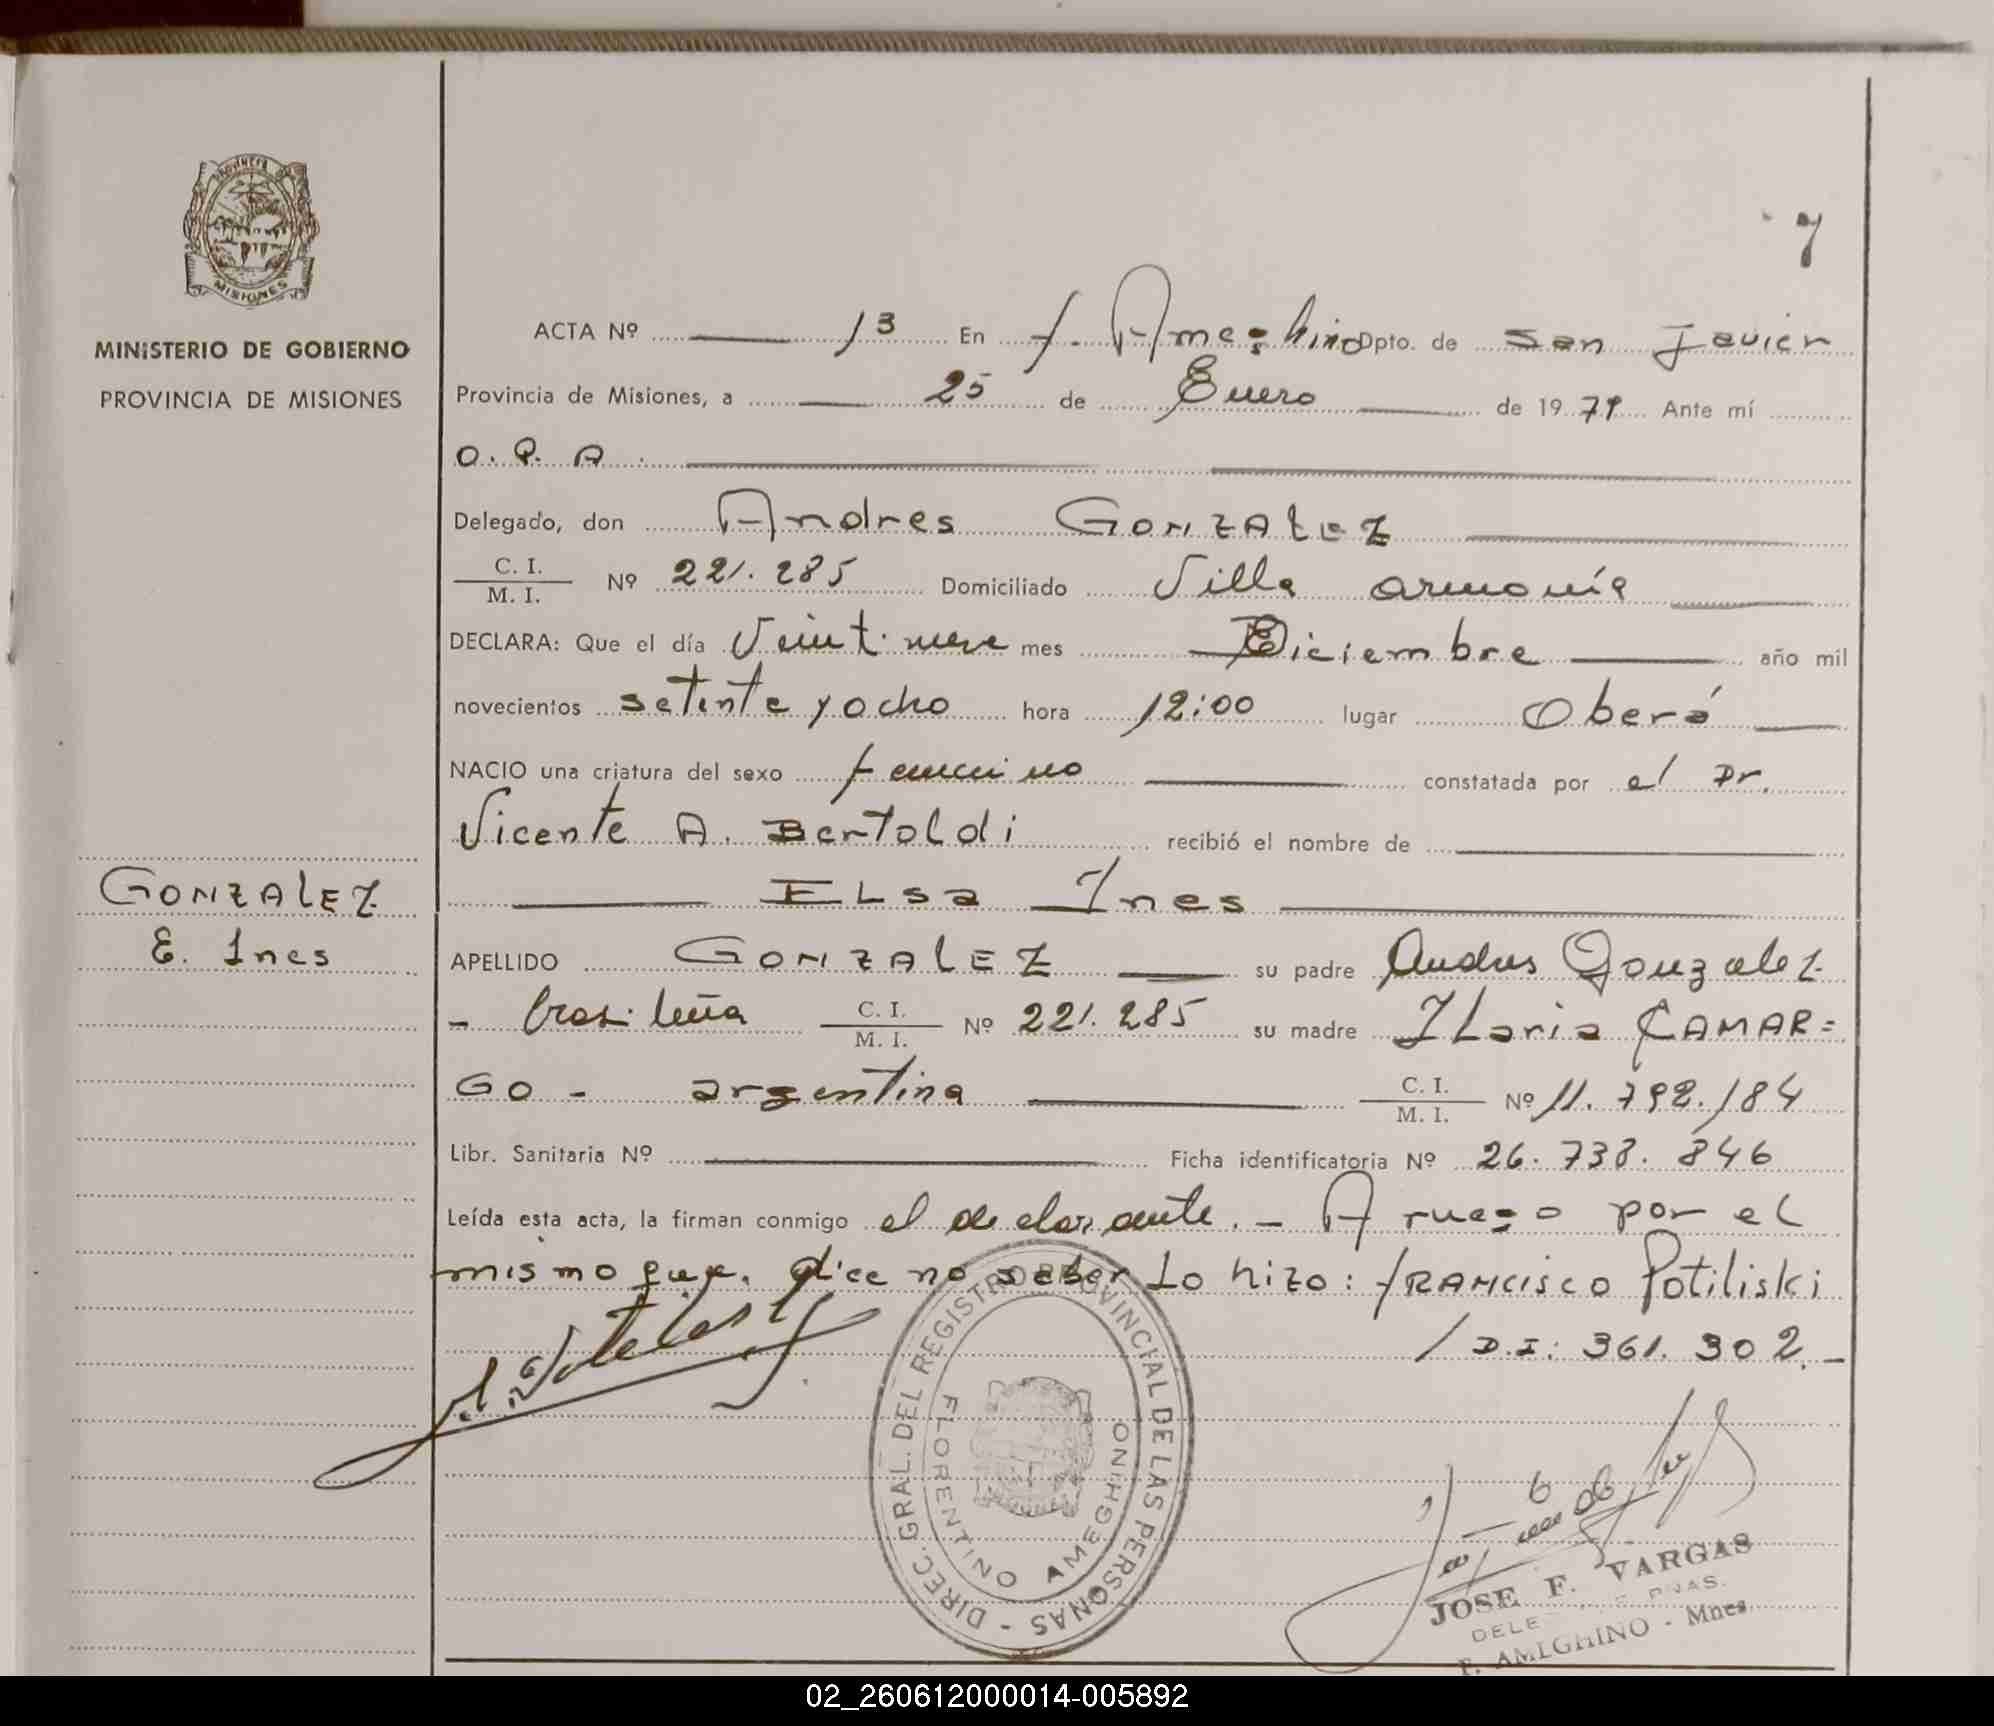 PROVINCIA DE
MISIONES
MINISTERIO DE GOBIERNO
PROVINCIA DE MISIONES
7
ACTA Nº 13 En F. Ameghino Dpto. de San Javier
Provincia de Misiones, a 25 de Enero de 1979 Ante mí
O. P. A
Delegado, don Andres GONZALEZ
C. I. / M. I. Nº 221.285 Domiciliado Villa armonía
DECLARA: Que el día Veintinueve mes Diciembre año mil
novecientos setenta y ocho hora 12:00 lugar Oberá
NACIO una criatura del sexo femenino constatada por el Dr.
Vicente A. Bertoldi recibió el nombre de
GONZALEZ
ELsa Ines
E. Ines
APELLIDO GONZALEZ su padre Andres Gonzalez
- brasileña C. I. / M. I. Nº 221.285 su madre ILaria CAMAR=
GO - argentina C. I. / M. I. Nº 11.792.184
Libr. Sanitaria Nº Ficha identificatoria Nº 26.738.846
Leída esta acta, la firman conmigo el declarante. - A ruego por el
mismo que dice no saber Lo hizo: FRANCISCO Potiliski
/ D.I: 361.302.-
DIREC. GRAL. DEL REGISTRO PROVINCIAL DE LAS PERSONAS -
FLORENTINO AMEGHINO
JOSE F. VARGAS
F. AMEGHINO - Mnes
02_260612000014-005892